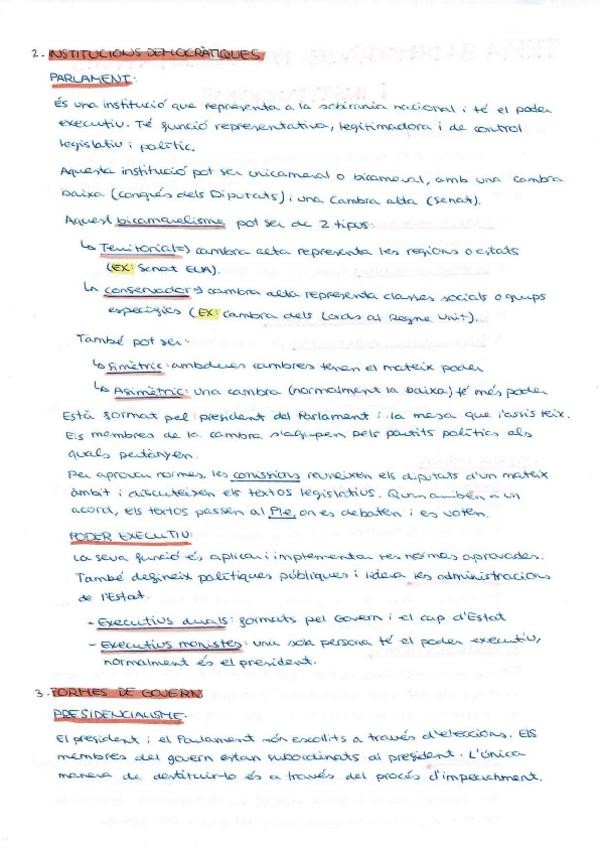 2. INSTITUCIONS DEMOCRÀTIQUES
PARLAMENT:
És una institució que representa a la sobirania nacional i té el poder
executiu. Té funció representativa, legitimadora i de control
legislatiu i polític.
Aquesta institució pot ser unicameral o bicameral, amb una cambra
baixa (congrés dels Diputats) i una Cambra alta (senat).
Aquest bicameralisme pot ser de 2 tipus:
↳ Territorial => cambra alta representa les regions o estats
(EX: Senat EUA).
↳ Conservador => cambra alta representa classes socials o grups
específics (EX: Cambra dels Lords al Regne Unit).
També pot ser:
↳ Simètric: ambdues cambres tenen el mateix poder
↳ Asimètric: una cambra (normalment la baixa) té més poder
Està format pel president del Parlament i la mesa que l'assisteix.
Els membres de la cambra s'agrupen pels partits polítics als
quals pertanyen.
Per aprovar normes, les comissions reuneixen els diputats d'un mateix
àmbit i discuteixen els textos legislatius. Quan arriben a un
acord, els textos passen al Ple, on es debaten i es voten.
PODER EXECUTIU:
La seva funció és aplicar i implementar les normes aprovades.
També defineix polítiques públiques i lidera les administracions
de l'Estat.
- Executius duals: formats pel Govern i el cap d'Estat
- Executius monistes: una sola persona té el poder executiu,
normalment és el president.
3. FORMES DE GOVERN
PRESIDENCIALISME:
El president i el Parlament són escollits a través d'eleccions. Els
membres del govern estan subordinats al president. L'única
manera de destituir-lo és a través del procés d'impeachment.